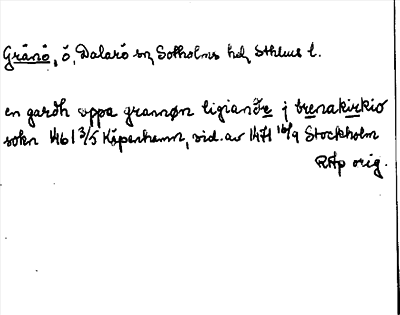 Gränö, ö, Dalarö sn, Sotholms hd, Sthlms l.
en gardh oppa grannøn ligiande j brenakirkio
sokn 1461 3/5 Köpenhamn, vid. av 1471 16/9 Stockholm
RAp orig.